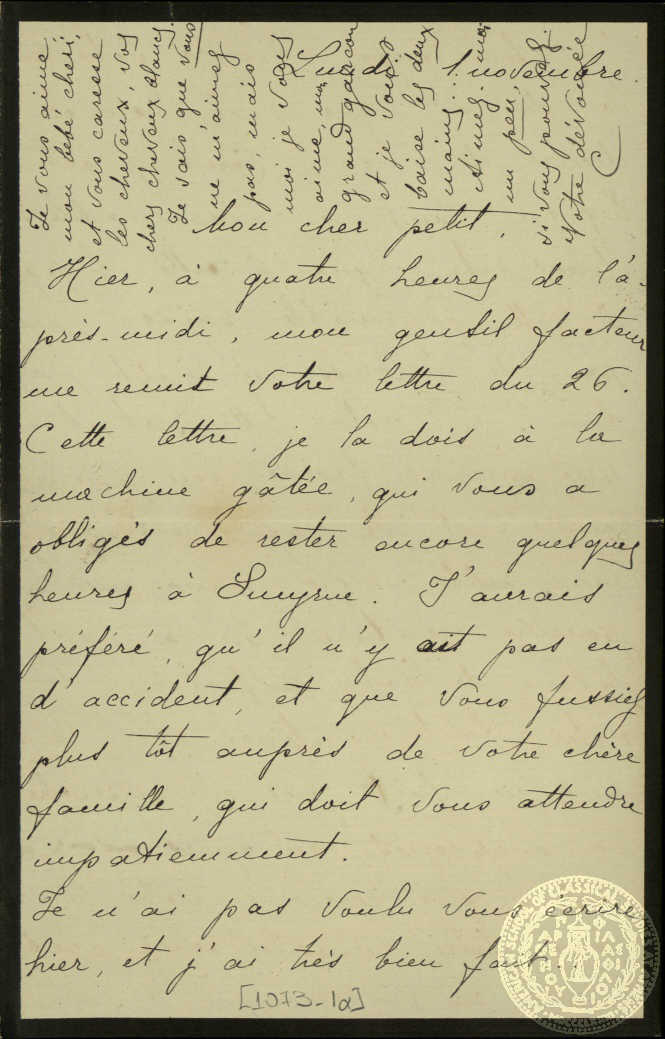 Lundi 1. novembre.
Mon cher petit,
Hier, à quatre heures de l'a-
près-midi, mon gentil facteur
me remit votre lettre du 26.
Cette lettre, je la dois à la
machine gâtée, qui vous a
obligés de rester encore quelques
heures à Smyrne. J'aurais
préféré, qu'il n'y ait pas eu
d'accident, et que vous fussiez
plus tôt auprès de votre chère
famille, qui doit vous attendre
impatiemment.
Je n'ai pas voulu vous écrire
hier, et j'ai très bien fait.
[1073-1a]
Je vous aime
mon bébé chéri,
et vous caresse
les cheveux, vos
chers cheveux blancs.
Je sais que vous
ne m'aimez
pas, mais
moi je vous
aime, mon
grand garçon
et je vous
baise les deux
mains. 
Aimez-moi
un peu,
si vous pouvez.
Votre dévouée
C
SCHOOL OF CLASSICAL